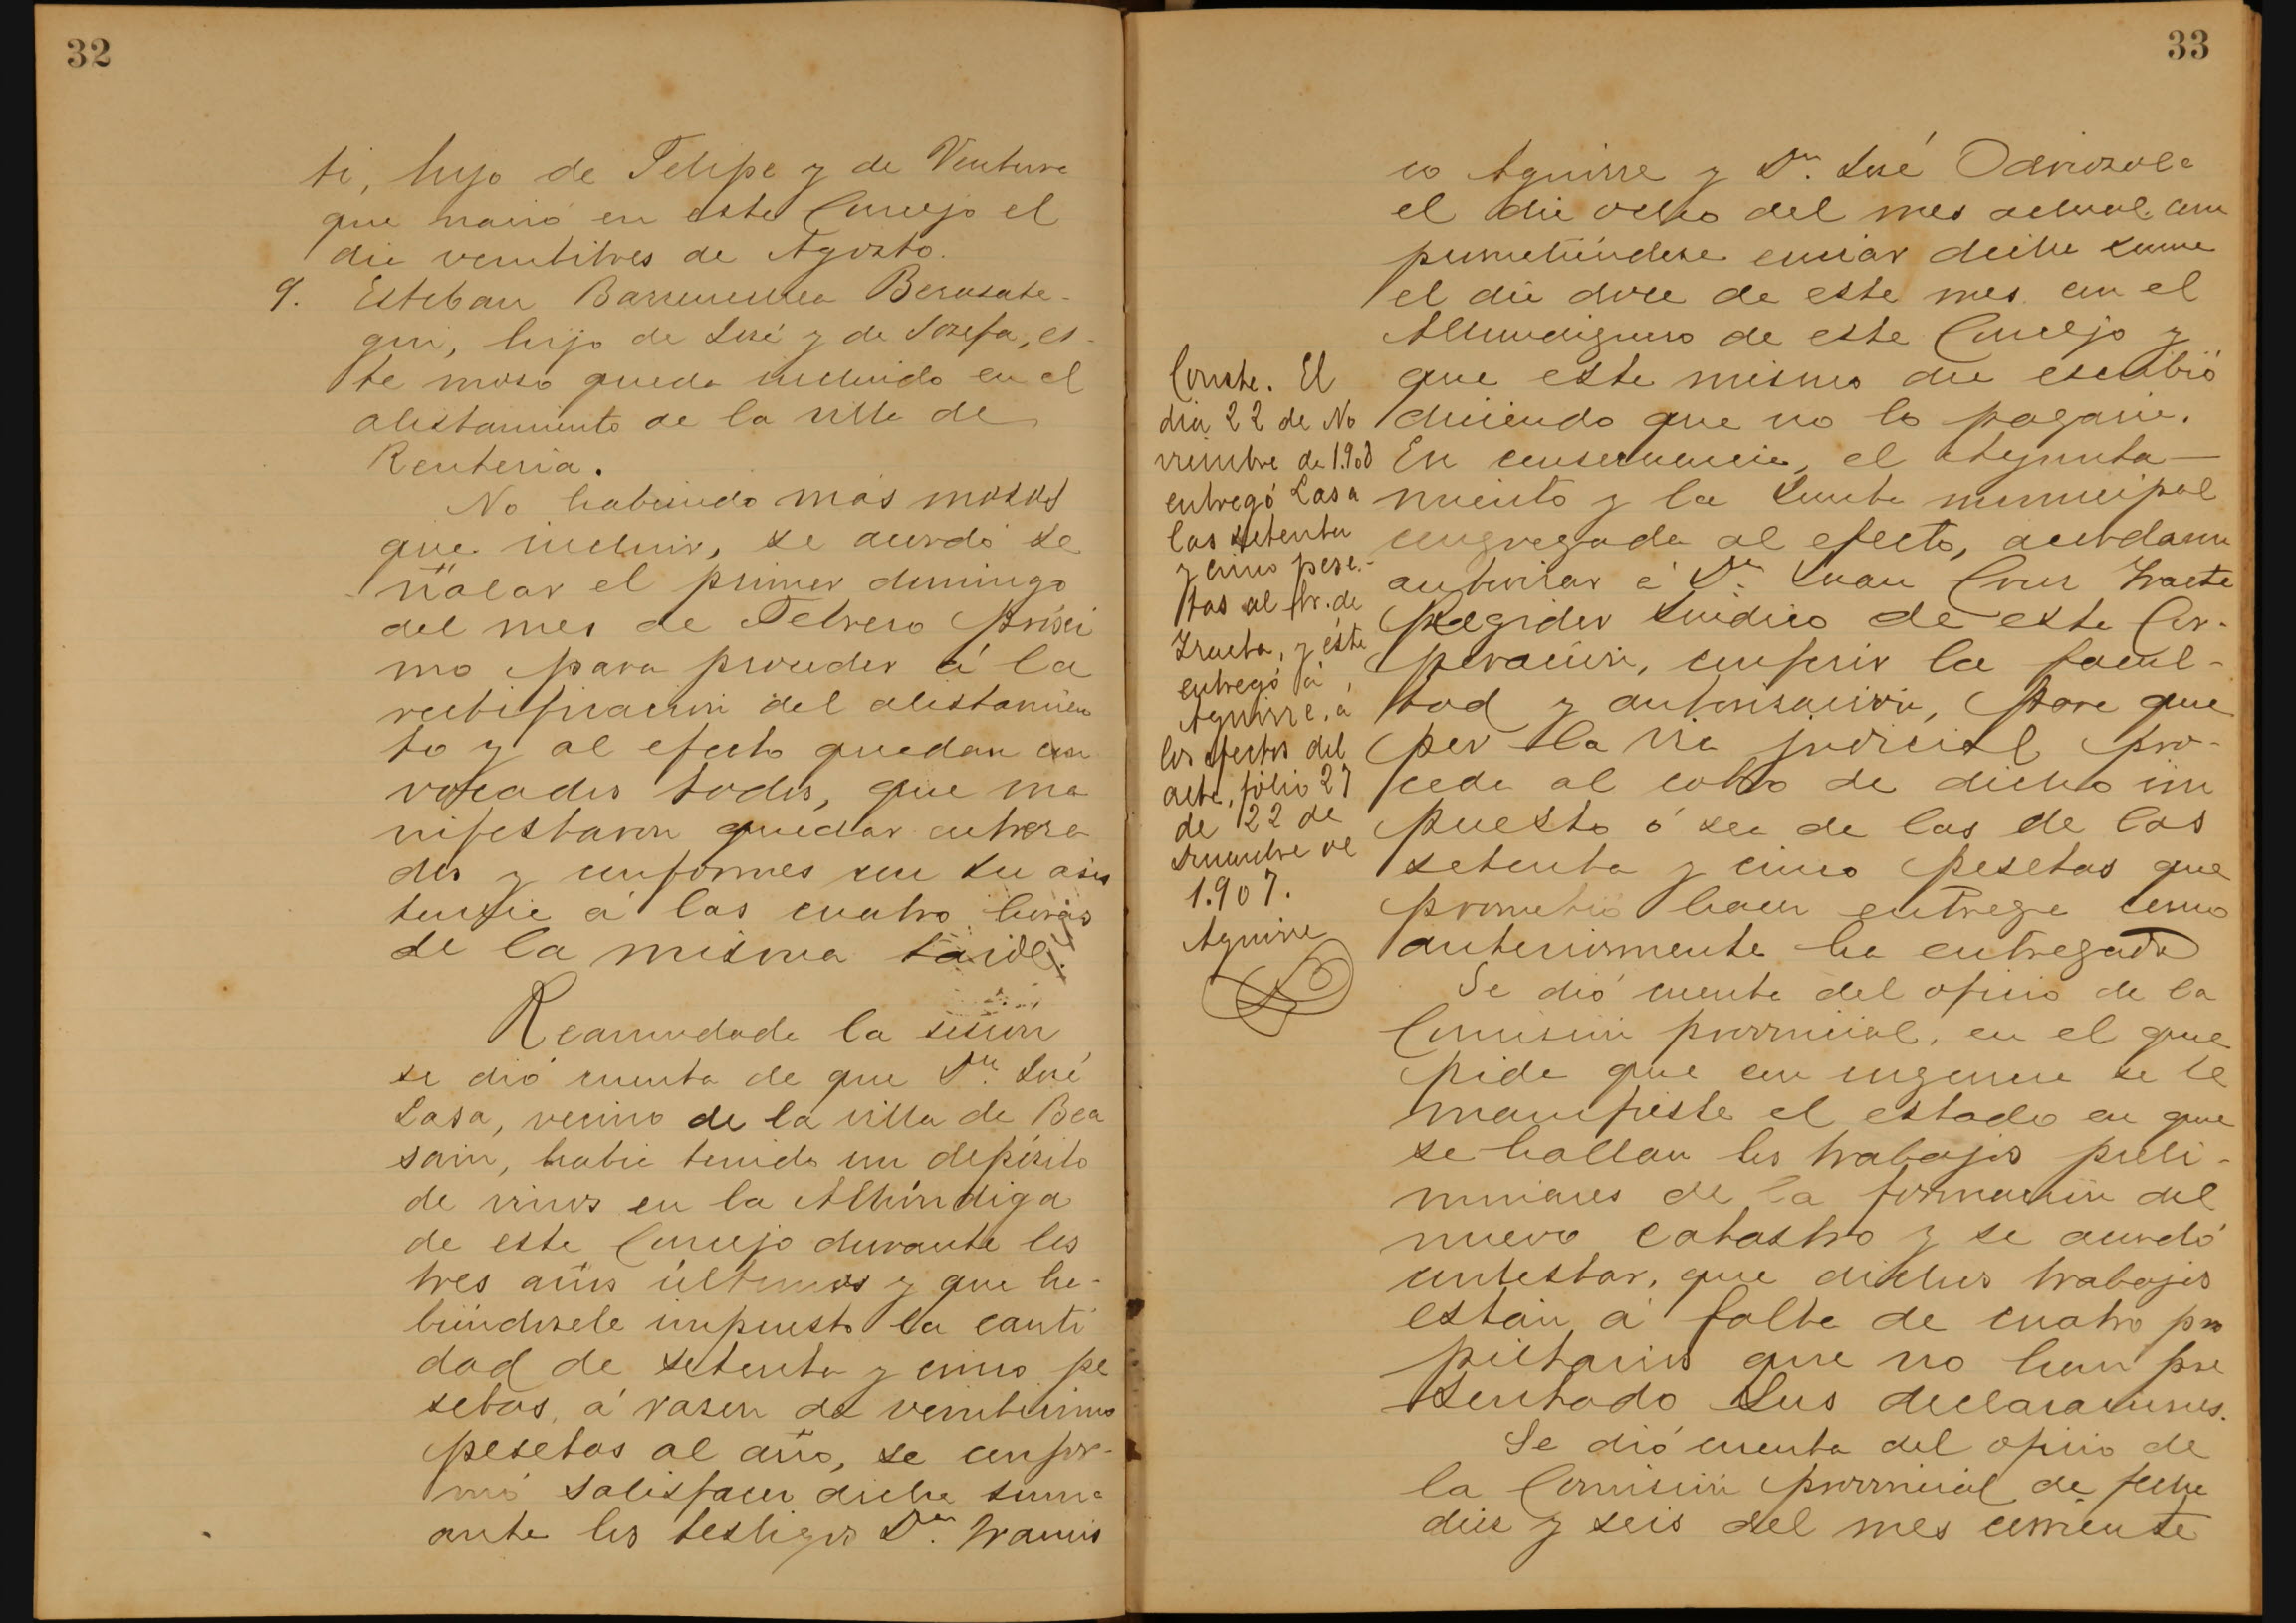 32
ti, hijo de Felipe y de Ventura
que nació en este Concejo el
dia ventitres de Agosto.
9. Esteban Barrenechea Berasate-
gui, hijo de José y de Josefa, es-
te moso queda incluido en el
alistamiento de la villa de
Renteria.
No habiendo más mosos
que incluir, se acordó se
ñalar el primer domingo
del mes de Febrero próxi
mo para proceder á la
rectificación del alistamien
to y al efecto quedan con
vocados todos, que ma
nifestaron quedar entera
dos y conformes con su asis
tencia á las cuatro horas
de la misma tarde.
Reanudada la sesión
se dió cuenta de que Dn. José
Lasa, vecino de la villa de Bea
sain, habia tenido un depósito
de vinos en la Alhóndiga
de este Concejo durante los
tres años últimos y que ha-
biéndosele impuesto la canti
dad de setenta y cinco pe
setas, á rason de veinticinco
pesetas al año, se confor-
mó satisfacer dicha suma
ante los testigos Dn. Francis
33
co Aguirre y Dn. José Odriozola
el dia ocho del mes actual com
prometiéndose enviar dicha suma
el dia doce de este mes con el
Alhondiguero de este Concejo y
que este mismo dia escribió
diciendo que no lo pagaria.
En consecuencia, el Ayunta-
miento y la Junta municipal
congregada al efecto, acordaron
autorizar á Dn. Juan Cruz Iraeta
Regidor Sindico de este Cor-
poración, conferir la facul-
tad y autorisación, para que
por la via judicial pro-
ceda al cobro de dicho im
puesto ó sea de las de las
setenta y cinco pesetas que
prometió hacer entrega como
anteriormente ha entregado
Se dió cuenta del oficio de la
Comisión provincial, en el que
pide que con urgencia se le
manifieste el estado en que
se hallan los trabajos preli-
minares de la formación del
nuevo catastro y se acordó
contestar, que dichos trabajos
están á falta de cuatro pro
pietarios que no han pre
sentado sus declaraciones.
Se dió cuenta del oficio de
la Comisión provincial de fecha
diez y seis del mes corriente
Conste. El
dia 22 de No
viembre de 1.908
entregó Lasa
las setenta
y cinco pese-
tas al Sr. de
Iraeta, y éste
entregó á
Aguirre, á
los efectos del
acta, fólio 27
de 22 de
Diciembre de
1.907.
Aguirre